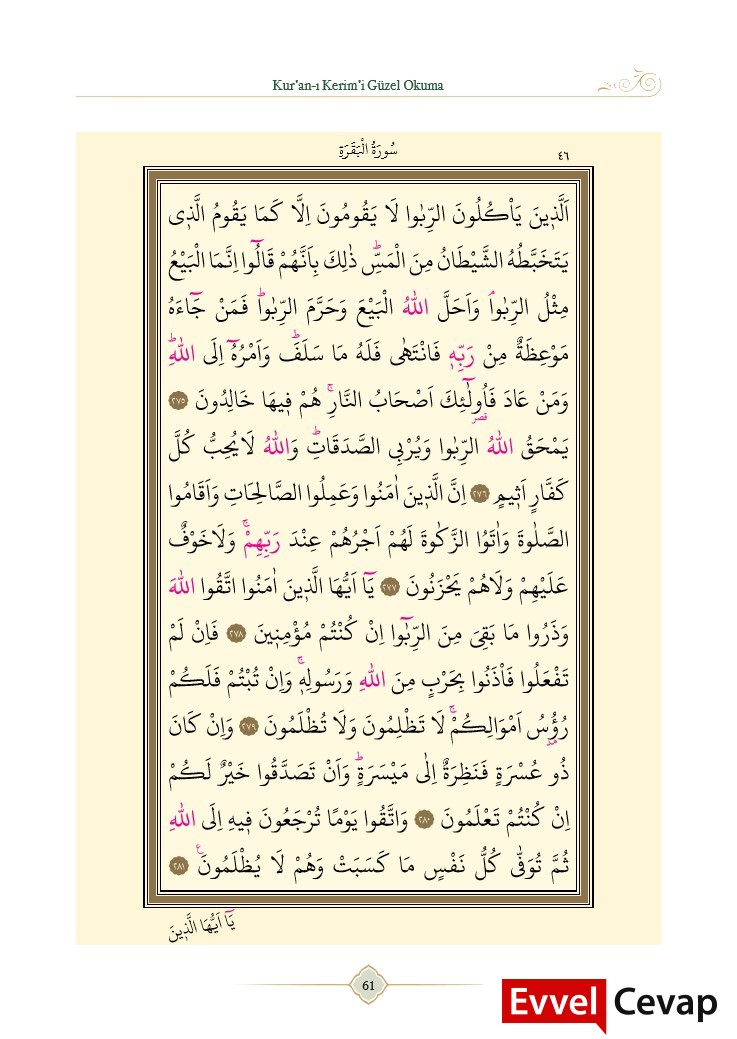 Kur'an-ı Kerim'i Güzel Okuma
سُورَةُ الْبَقَرَةِ
٤٦
اَلَّذ۪ينَ يَأْكُلُونَ الرِّبٰوا لَا يَقُومُونَ اِلَّا كَمَا يَقُومُ الَّذ۪ي
يَتَخَبَّطُهُ الشَّيْطَانُ مِنَ الْمَسِّۜ ذٰلِكَ بِاَنَّهُمْ قَالُٓوا اِنَّمَا الْبَيْعُ
مِثْلُ الرِّبٰواۢ وَاَحَلَّ اللّٰهُ الْبَيْعَ وَحَرَّمَ الرِّبٰواۜ فَمَنْ جَٓاءَهُ
مَوْعِظَةٌ مِنْ رَبِّه۪ فَانْتَهٰى فَلَهُ مَا سَلَفَۜ وَاَمْرُهُٓ اِلَى اللّٰهِۜ
وَمَنْ عَادَ فَاُو۬لٰٓئِكَ اَصْحَابُ النَّارِۚ هُمْ ف۪يهَا خَالِدُونَ ٢٧٥
يَمْحَقُ اللّٰهُ الرِّبٰوا وَيُرْبِي الصَّدَقَاتِۜ وَاللّٰهُ لَا يُحِبُّ كُلَّ
كَفَّارٍ اَث۪يمٍ ٢٧٦ اِنَّ الَّذ۪ينَ اٰمَنُوا وَعَمِلُوا الصَّالِحَاتِ وَاَقَامُوا
الصَّلٰوةَ وَاٰتَوُا الزَّكٰوةَ لَهُمْ اَجْرُهُمْ عِنْدَ رَبِّهِمْۚ وَلَا خَوْفٌ
عَلَيْهِمْ وَلَا هُمْ يَحْزَنُونَ ٢٧٧ يَٓا اَيُّهَا الَّذ۪ينَ اٰمَنُوا اتَّقُوا اللّٰهَ
وَذَرُوا مَا بَقِيَ مِنَ الرِّبٰٓوا اِنْ كُنْتُمْ مُؤْمِن۪ينَ ٢٧٨ فَاِنْ لَمْ
تَفْعَلُوا فَأْذَنُوا بِحَرْبٍ مِنَ اللّٰهِ وَرَسُولِه۪ۚ وَاِنْ تُبْتُمْ فَلَكُمْ
رُؤُ۫سُ اَمْوَالِكُمْۚ لَا تَظْلِمُونَ وَلَا تُظْلَمُونَ ٢٧٩ وَاِنْ كَانَ
ذُو عُسْرَةٍ فَنَظِرَةٌ اِلٰى مَيْسَرَةٍۜ وَاَنْ تَصَدَّقُوا خَيْرٌ لَكُمْ
اِنْ كُنْتُمْ تَعْلَمُونَ ٢٨٠ وَاتَّقُوا يَوْمًا تُرْجَعُونَ ف۪يهِ اِلَى اللّٰهِ
ثُمَّ تُوَفّٰى كُلُّ نَفْسٍ مَا كَسَبَتْ وَهُمْ لَا يُظْلَمُونَ۟ ٢٨١
يَٓا اَيُّهَا الَّذ۪ينَ
61
Evvel Cevap